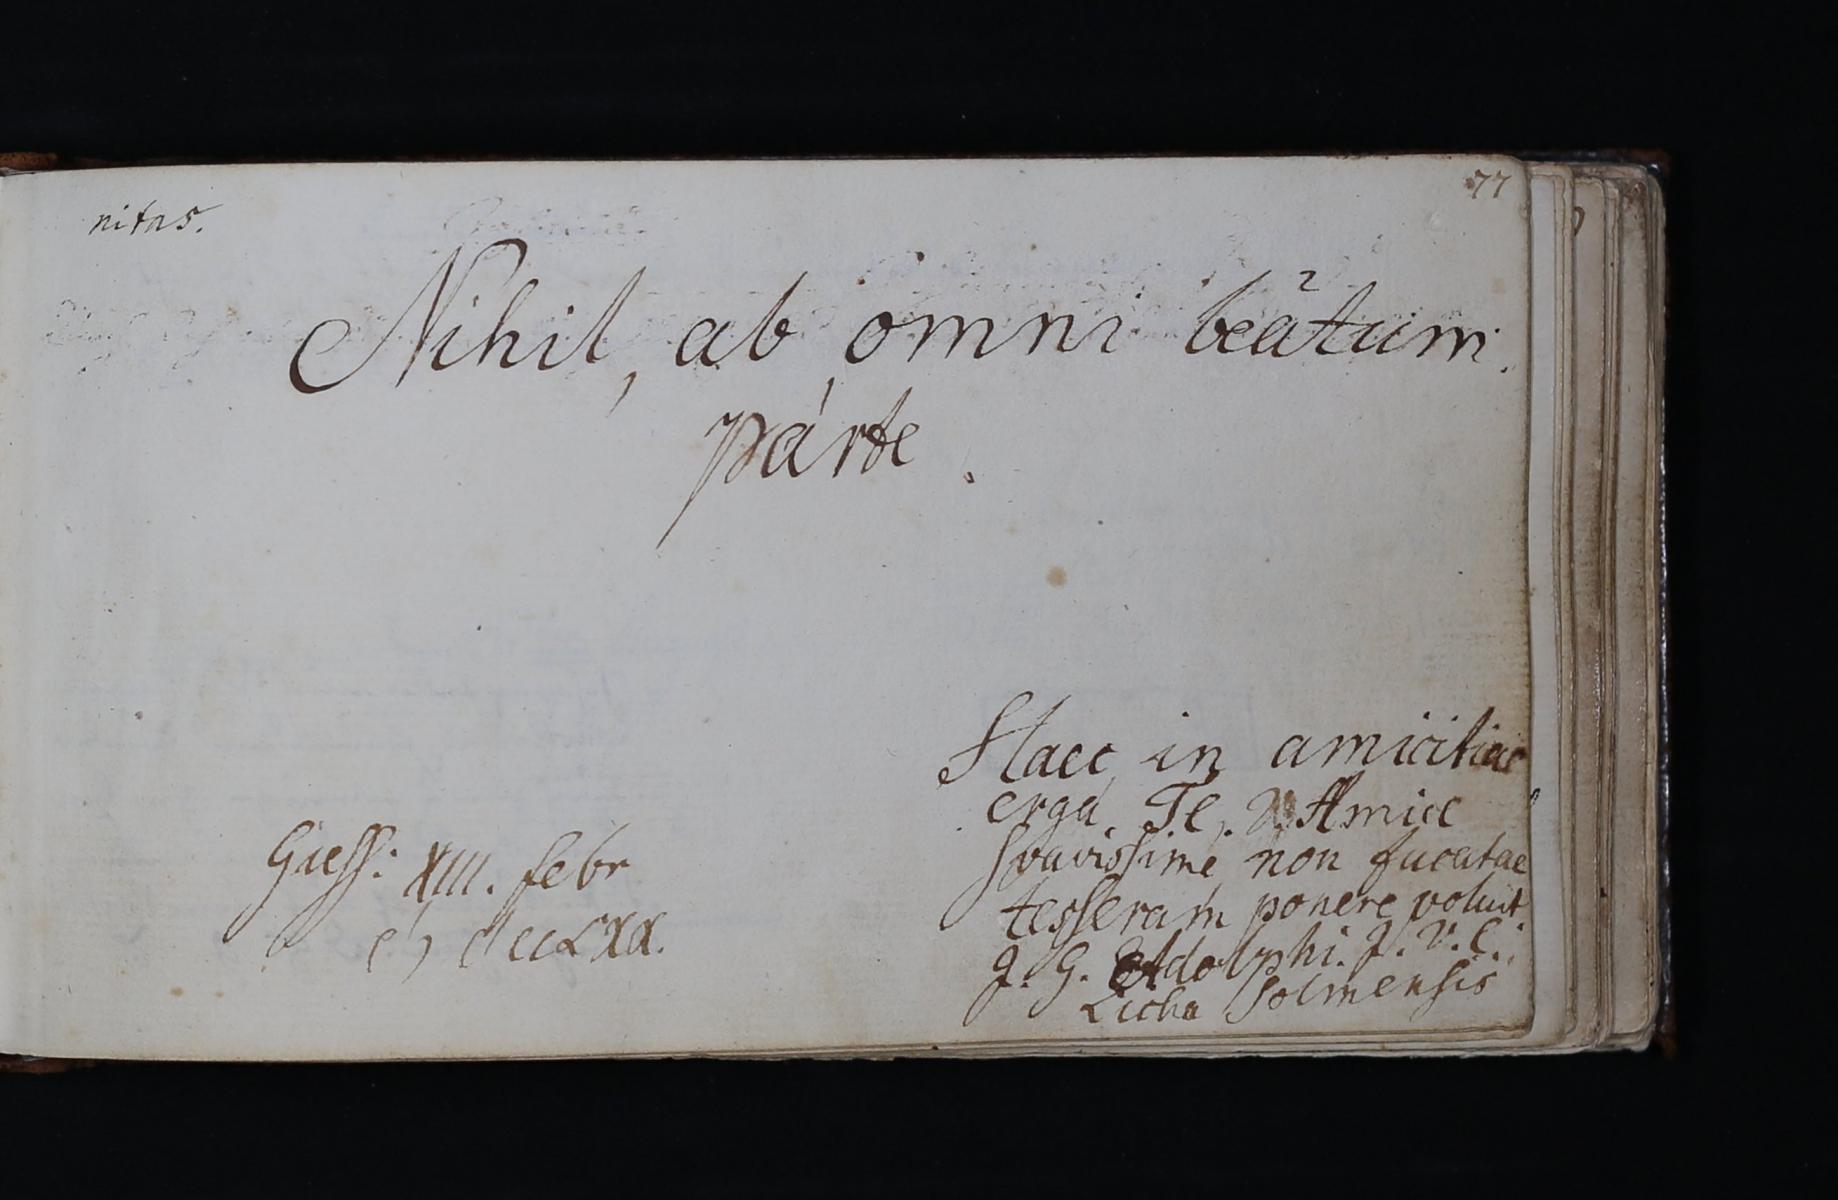 77
nitas.
Nihil, ab omni beātum.
parte.
Haec in amicitiae
erga Te, Amice
svavissime non fucatae
tesseram ponere voluit
J. G. Adolphi. J. V. C.
Licha Solmensis
Giess: XIII. febr